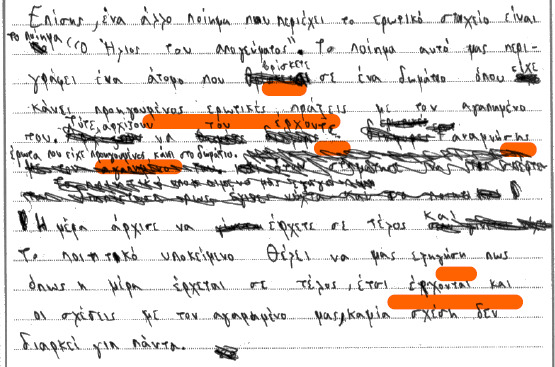 Επίσης, ένα άλλο ποίημα που περιέχει το ερωτικό στοιχείο είναι
το ποίημα "Ο Ήλιος του απογεύματος". Το ποίημα αυτό μας περι-
γράφει ένα άτομο που βρίσκετε σε ένα δωμάτιο όπου είχε
κάνει προηγουμένος ερωτικές πράξεις με τον αγαπημένο
του. Τότε, αρχίζουν να του έρχοντε αναμνήσης
έρωτα που είχε προηγουμένος κάνει στο δωμάτιο.
Η μέρα άρχισε να έρχετε σε τέλος και
Το ποιητικό υποκείμενο θέλει να μας εξηγήση πως
όπως η μέρα έρχεται σε τέλος, έτσι έρχονται και
οι σχέσεις με τον αγαπαμένο μας, καμία σχέση δεν
διαρκεί για πάντα.